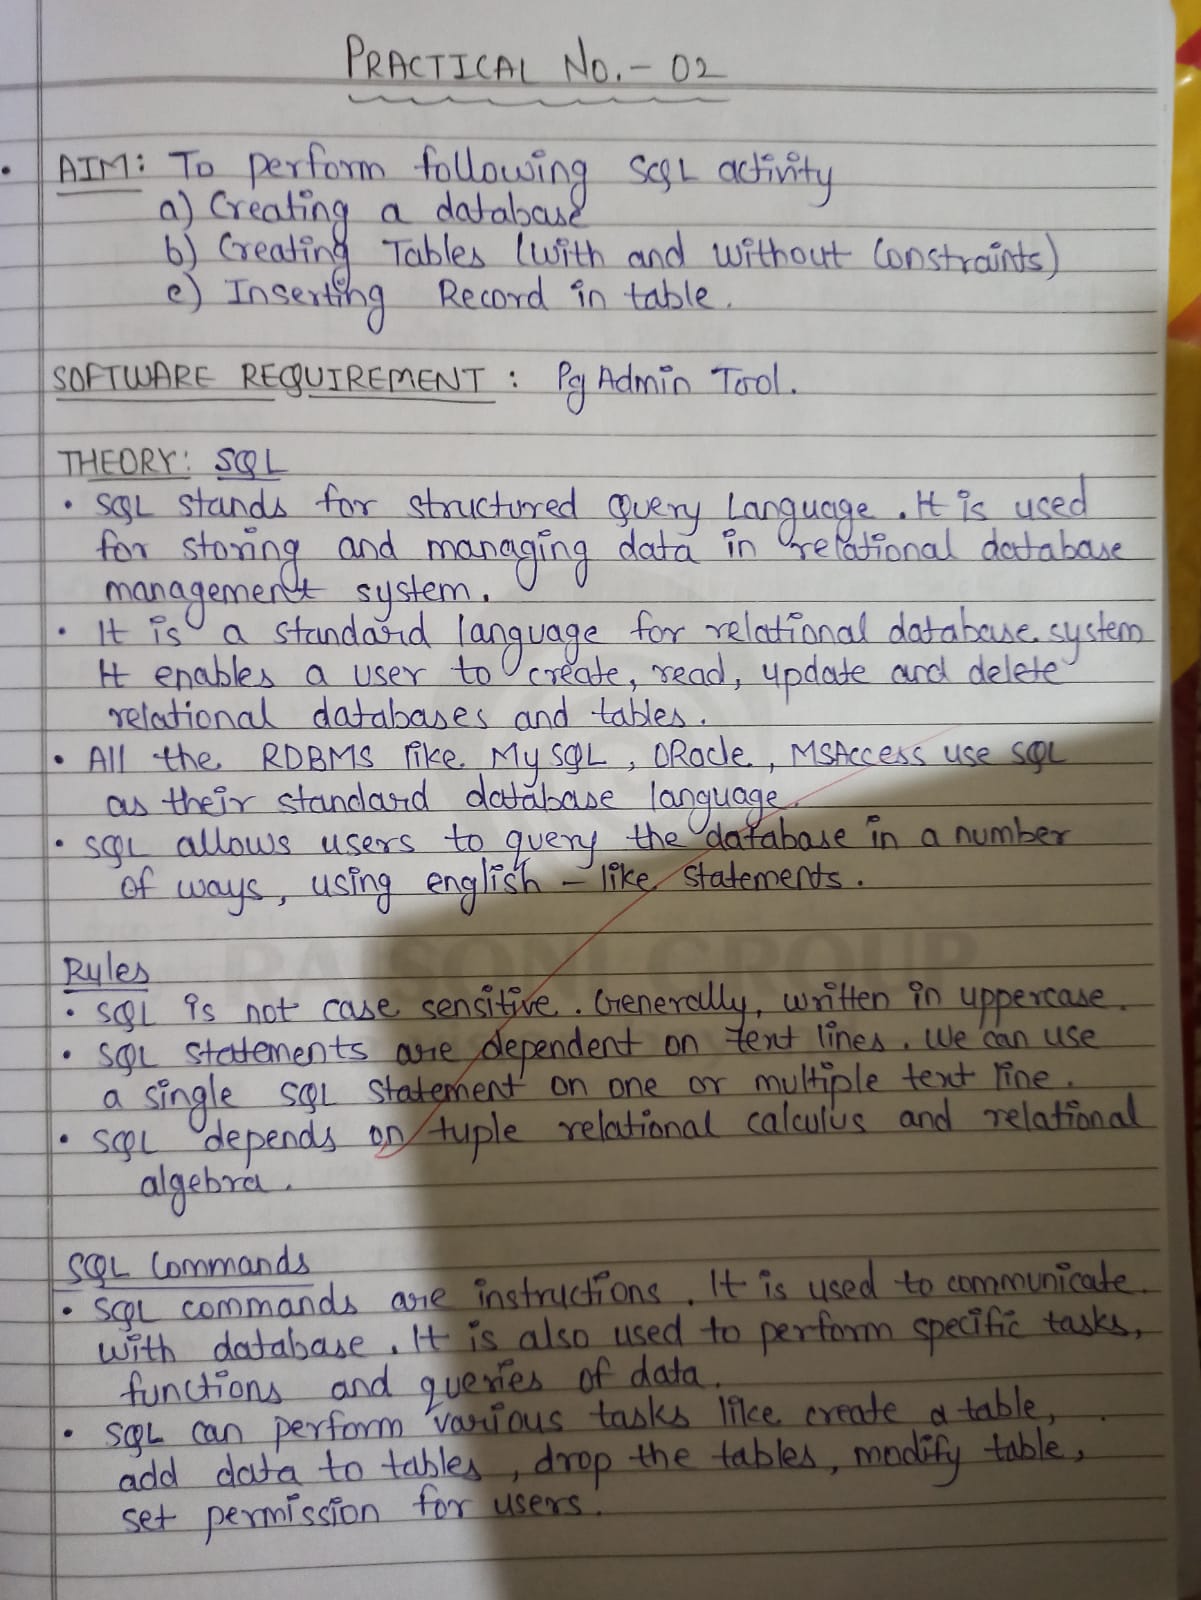 PRACTICAL NO.- 02
• AIM: To perform following SQL activity
a) Creating a database
b) Creating Tables (with and without Constraints)
c) Inserting Record in table.
SOFTWARE REQUIREMENT : Pg Admin Tool.
THEORY: SQL
• SQL stands for structured Query Language. It is used
for storing and managing data in relational database
management system.
• It is a standard language for relational database system
It enables a user to create, read, update and delete
relational databases and tables.
• All the RDBMS like MySQL, ORacle, MSAccess use SQL
as their standard database language.
• SQL allows users to query the database in a number
of ways, using english - like statements.
RAISONI GROUP
Rules
• SQL is not case sensitive. Generally, written in uppercase.
• SQL statements are dependent on text lines. We can use
a single SQL statement on one or multiple text line.
• SQL depends on tuple relational calculus and relational
algebra.
SQL Commands
• SQL commands are instructions. It is used to communicate
with database. It is also used to perform specific tasks,
functions and queries of data.
• SQL can perform various tasks like create a table,
add data to tables, drop the tables, modify table,
set permission for users.